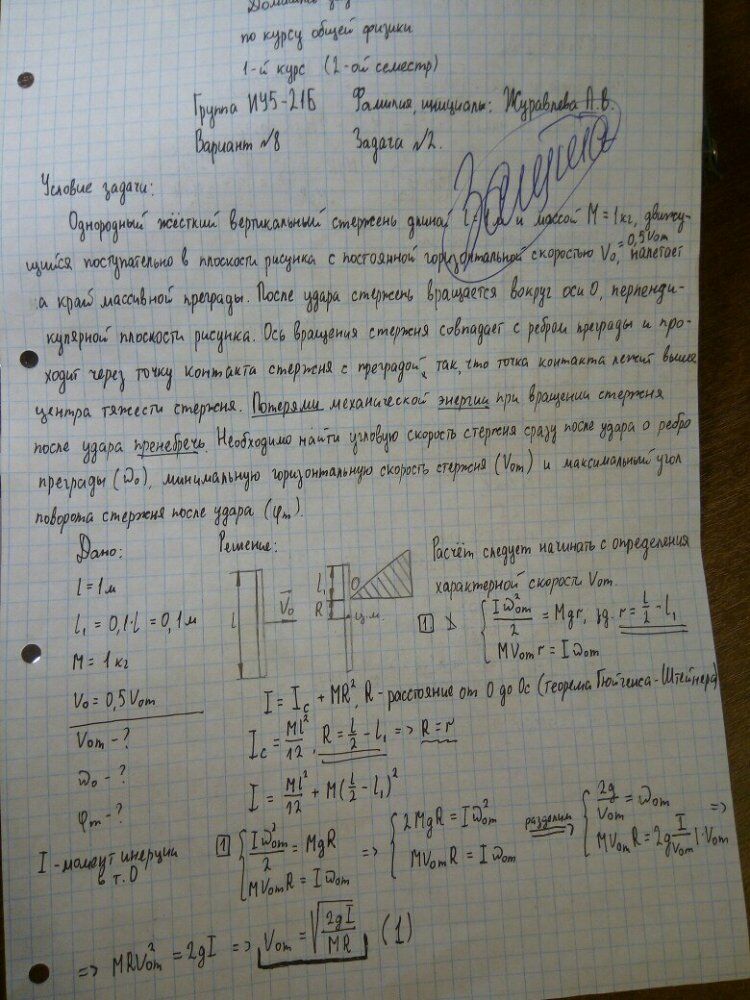 Домашн
по курсу общей физики
1-й курс (2-ой семестр)
Группа ИУ5-21Б Фамилия, инициалы: Журавлева А.В.
Вариант №8 Задача №2.
Условие задачи:
Однородный жёсткий вертикальный стержень длиной l = 1м и массой M = 1кг, движу-
щийся поступательно в плоскости рисунка с постоянной горизонтальной скоростью V₀, = 0,5V₀m налетает
а край массивной преграды. После удара стержень вращается вокруг оси O, перпенди-
кулярной плоскости рисунка. Ось вращения стержня совпадает с ребром преграды и про-
ходит через точку контакта стержня с преградой, так, что точка контакта лежит выше
центра тяжести стержня. Потерями механической энергии при вращении стержня
после удара пренебречь. Необходимо найти угловую скорость стержня сразу после удара о ребро
преграды (ω₀), минимальную горизонтальную скорость стержня (V₀m) и максимальный угол
поворота стержня после удара (φm).
Дано: Решение:
l = 1м
l₁ = 0,1·l = 0,1м
M = 1кг
V₀ = 0,5V₀m
V₀m - ?
ω₀ - ?
φm - ?
I - момент инерции
в т. O
l V₀ l₁ R O ц.м.
Расчёт следует начинать с определения
характерной скорости V₀m.
1 { Iω₀m²/2 = Mgr, где r = l/2 - l₁
MV₀m r = Iω₀m
I = Ic + MR², R - расстояние от O до Oc (теорема Гюйгенса-Штейнера)
Ic = Ml²/12, R = l/2 - l₁ => R = r
I = Ml²/12 + M(l/2 - l₁)²
1 { Iω₀m²/2 = MgR => { 2MgR = Iω₀m² разделим => { 2g/V₀m = ω₀m =>
MV₀mR = Iω₀m MV₀mR = Iω₀m MV₀mR = 2g I/V₀m |·V₀m
=> MRV₀m² = 2gI => V₀m = √(2gI/MR) (1)